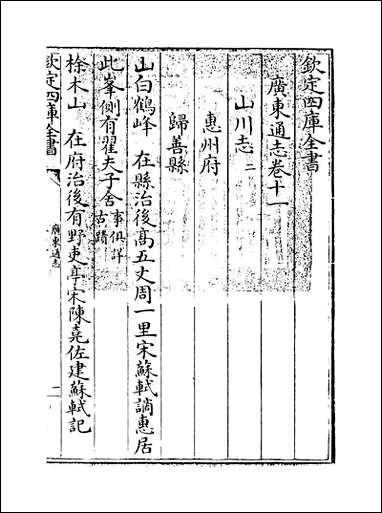 欽定四庫全書
廣東通志卷十一
山川志二
惠州府
歸善縣
山白鶴峰 在縣治後高五丈周一里宋蘇軾謫惠居
此峯側有翟夫子舍事俱詳古蹟
梌木山 在府治後有野吏亭宋陳堯佐建蘇軾記
欽定四庫全書
廣東通志